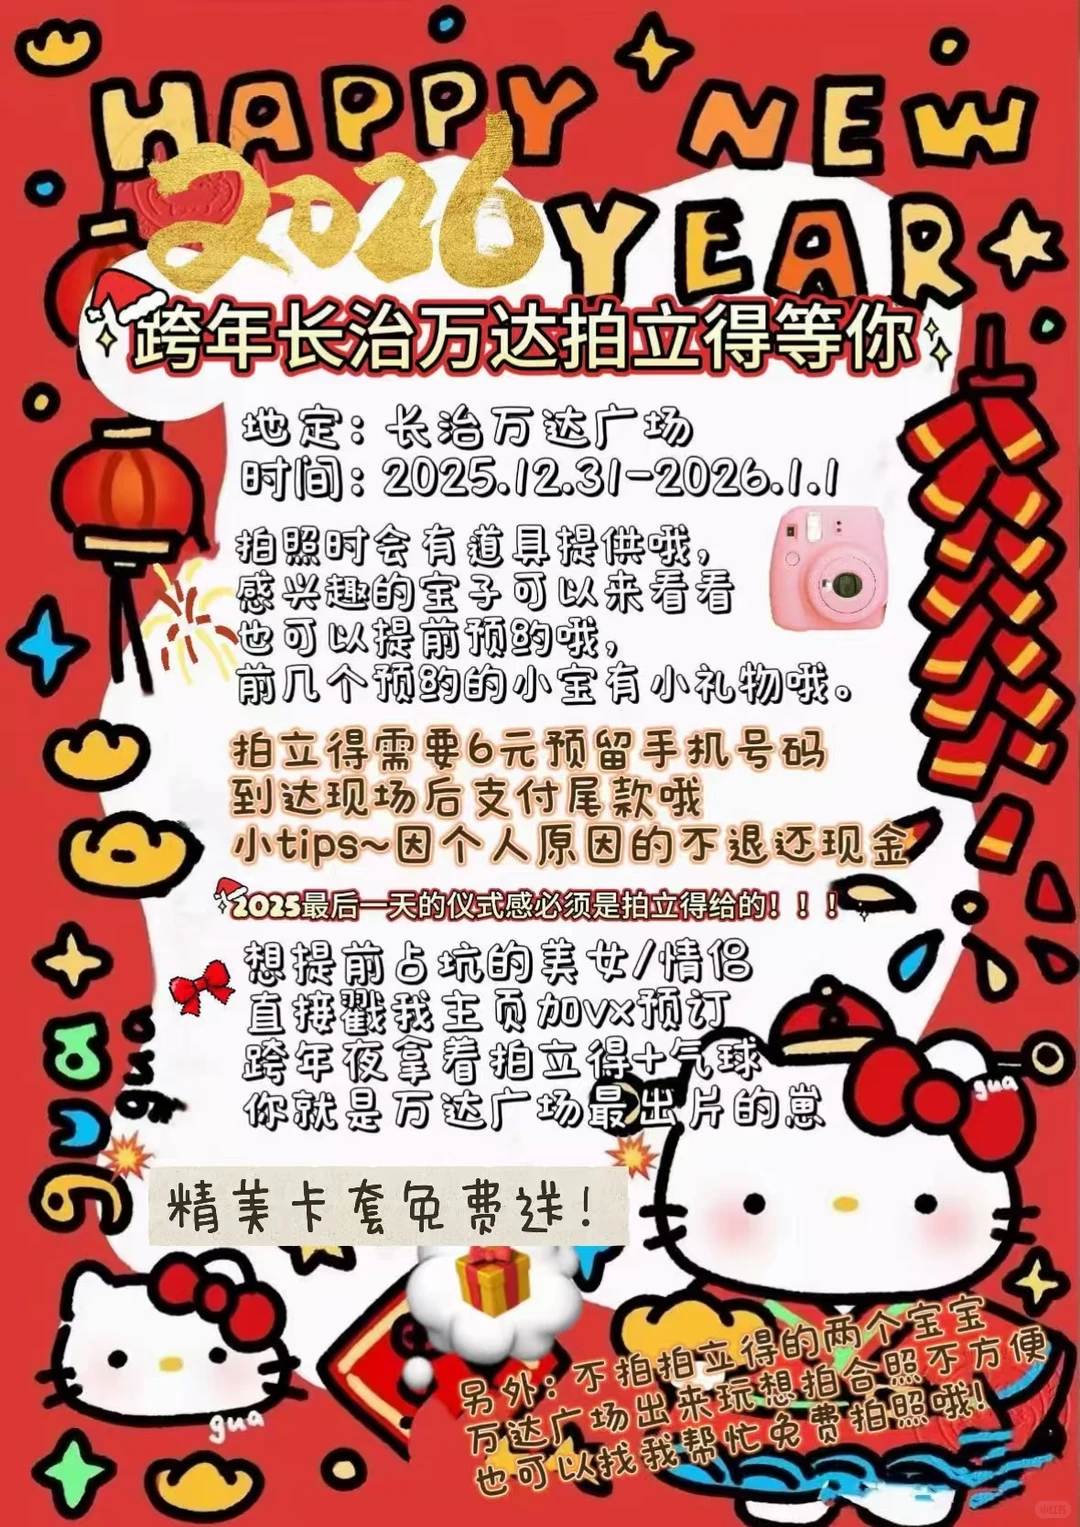 HAPPY NEW
2026 YEAR
跨年长治万达拍立得等你
地定：长治万达广场
时间：2025.12.31-2026.1.1
拍照时会有道具提供哦，
感兴趣的宝子可以来看看
也可以提前预约哦，
前几个预约的小宝有小礼物哦。
拍立得需要6元预留手机号码
到达现场后支付尾款哦
小tips~因个人原因的不退还现金
2025最后一天的仪式感必须是拍立得给的！！！
想提前占坑的美女/情侣
直接戳我主页加vx预订
跨年夜拿着拍立得+气球
你就是万达广场最出片的崽
gua
gua
gua
精美卡套免费送！
gua
另外：不拍拍立得的两个宝宝
万达广场出来玩想拍合照不方便
也可以找我帮忙免费拍照哦！
小红书